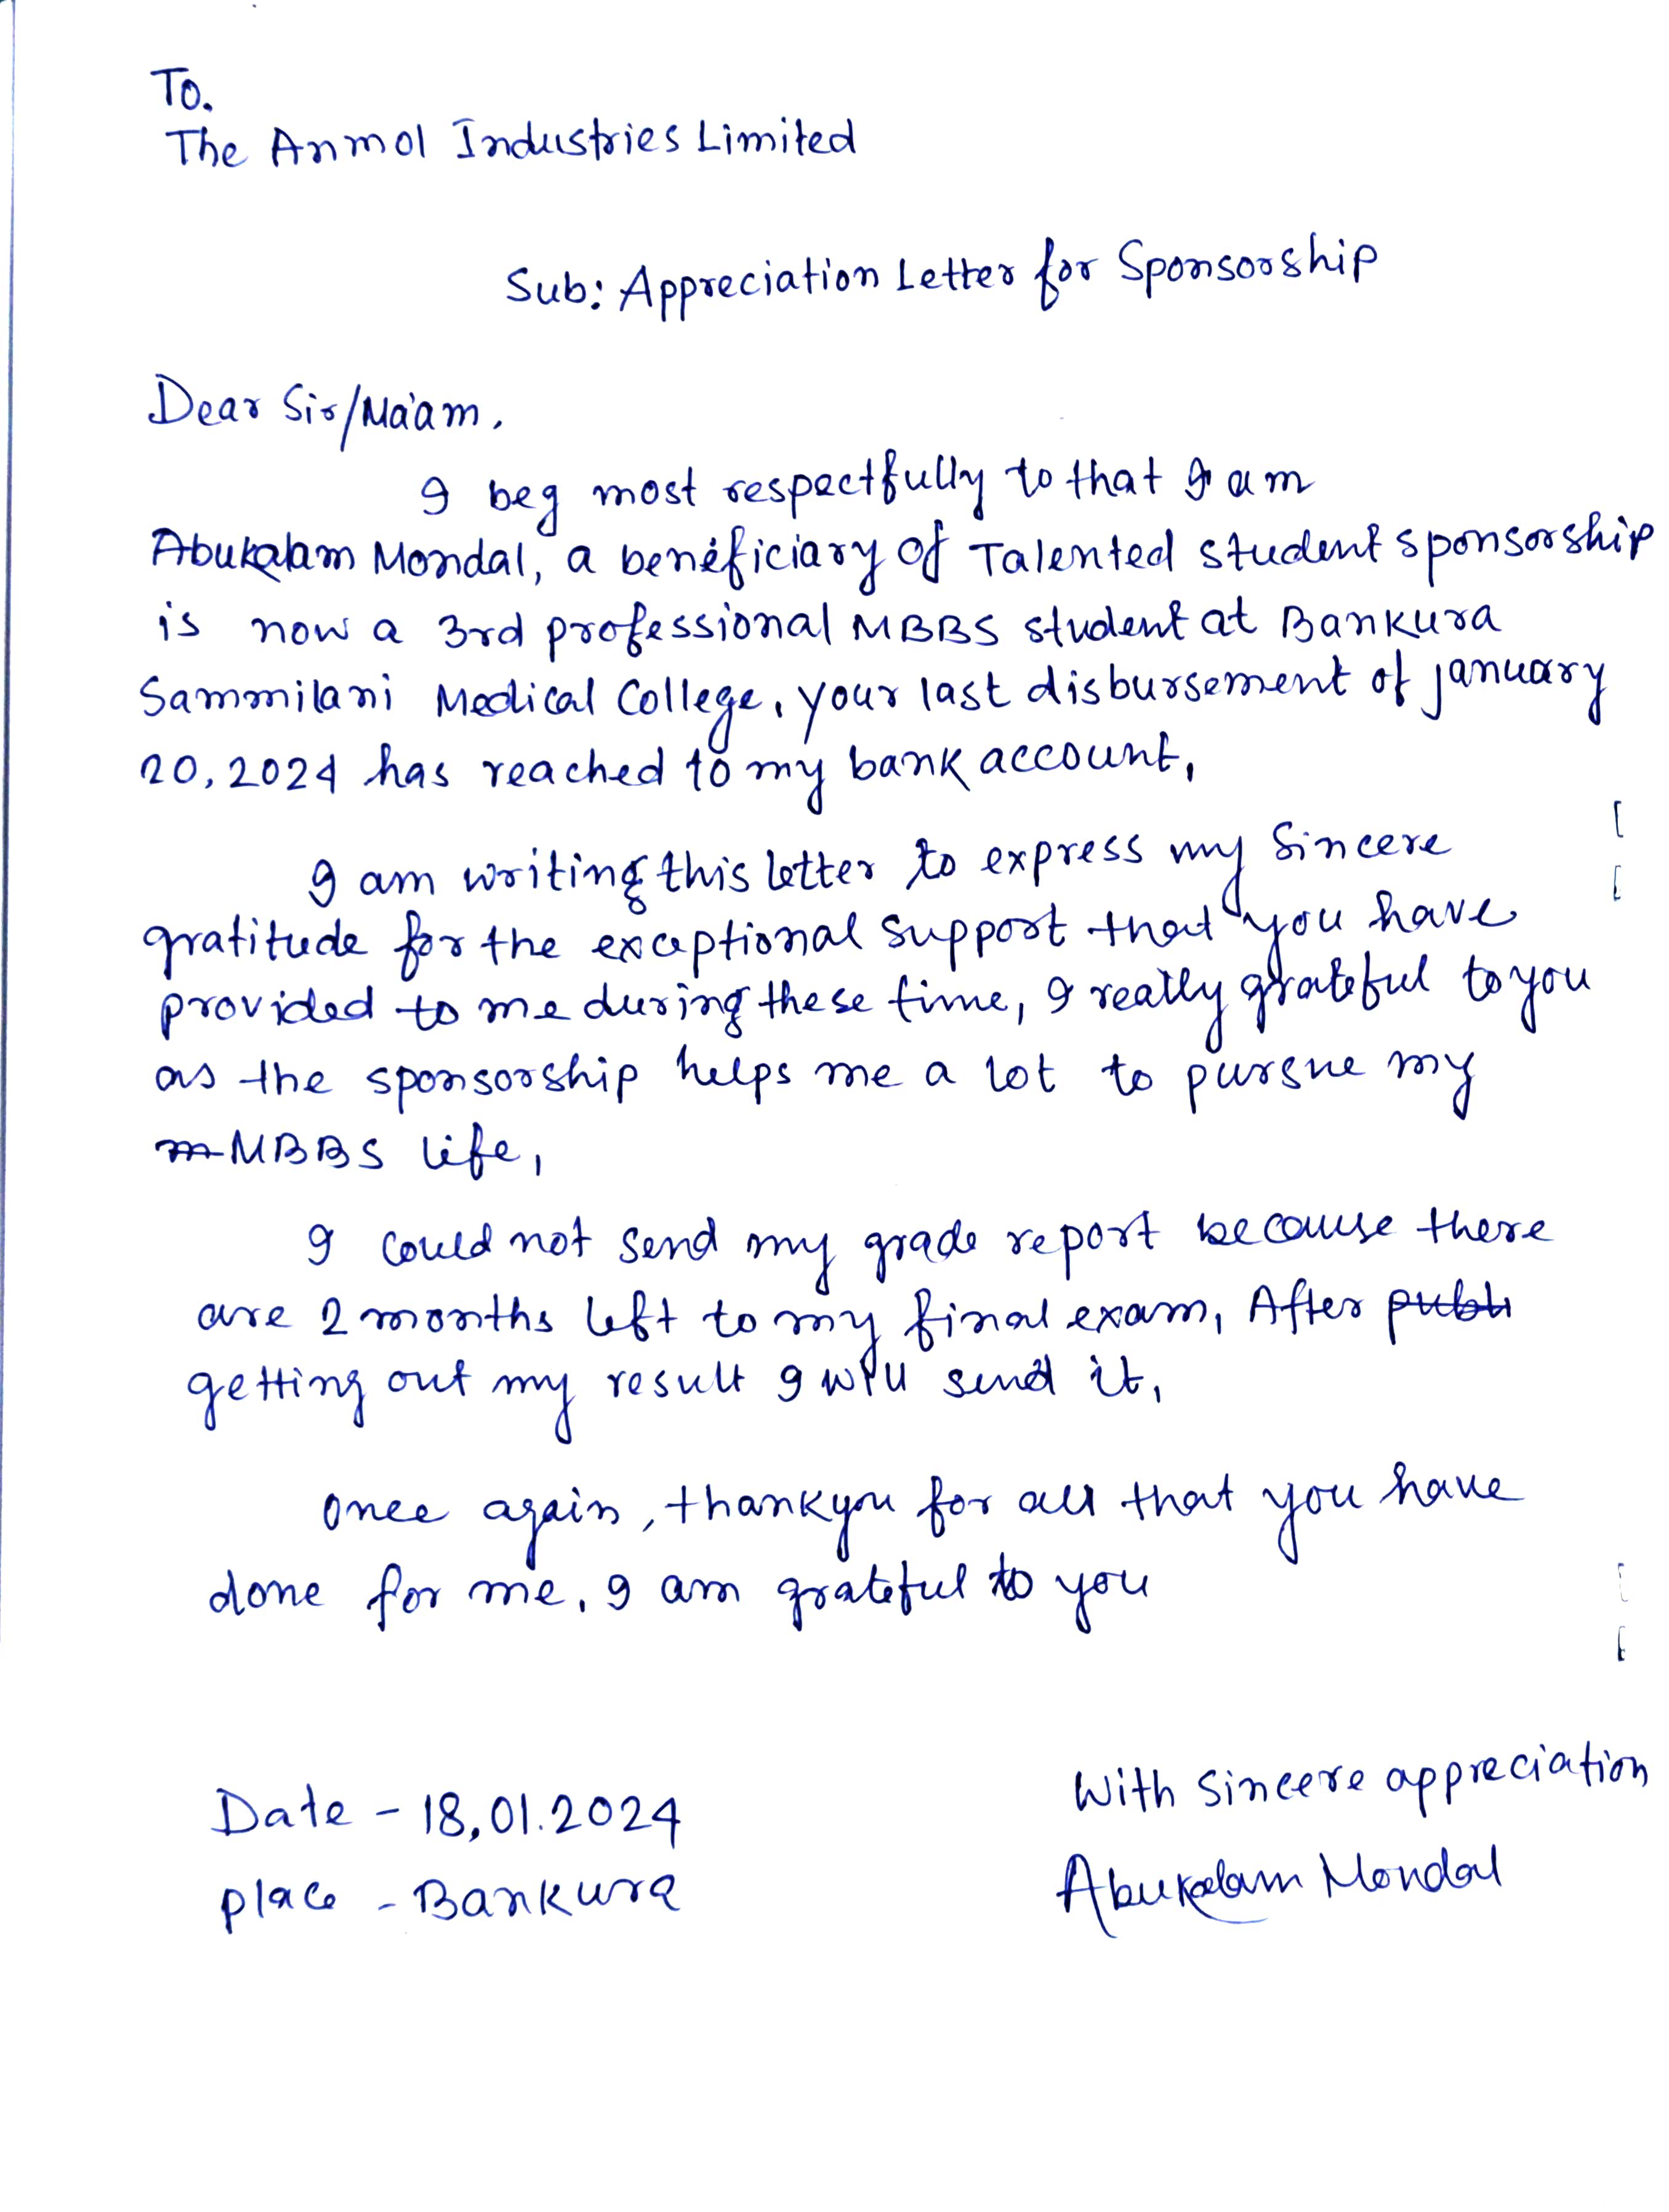 To.
The Anmol Industries Limited
Sub: Appreciation Letter for Sponsorship
Dear Sir/Ma'am,
I beg most respectfully to that I am
Abukalam Mondal, a beneficiary of Talented student sponsorship
is now a 3rd professional MBBS student at Bankura
Sammilani Medical College, your last disbursement of january
20, 2024 has reached to my bank account,
I am writing this letter to express my Sincere
gratitude for the exceptional support that you have
provided to me during these time, I really grateful to you
as the sponsorship helps me a lot to pursue my
MBBS life,
I could not send my grade report because there
are 2 months left to my final exam, After
getting out my result I will send it,
once again, thankyou for all that you have
done for me, I am grateful to you
With sincere appreciation
Date - 18,01.2024
Abukalam Mondal
place - Bankura